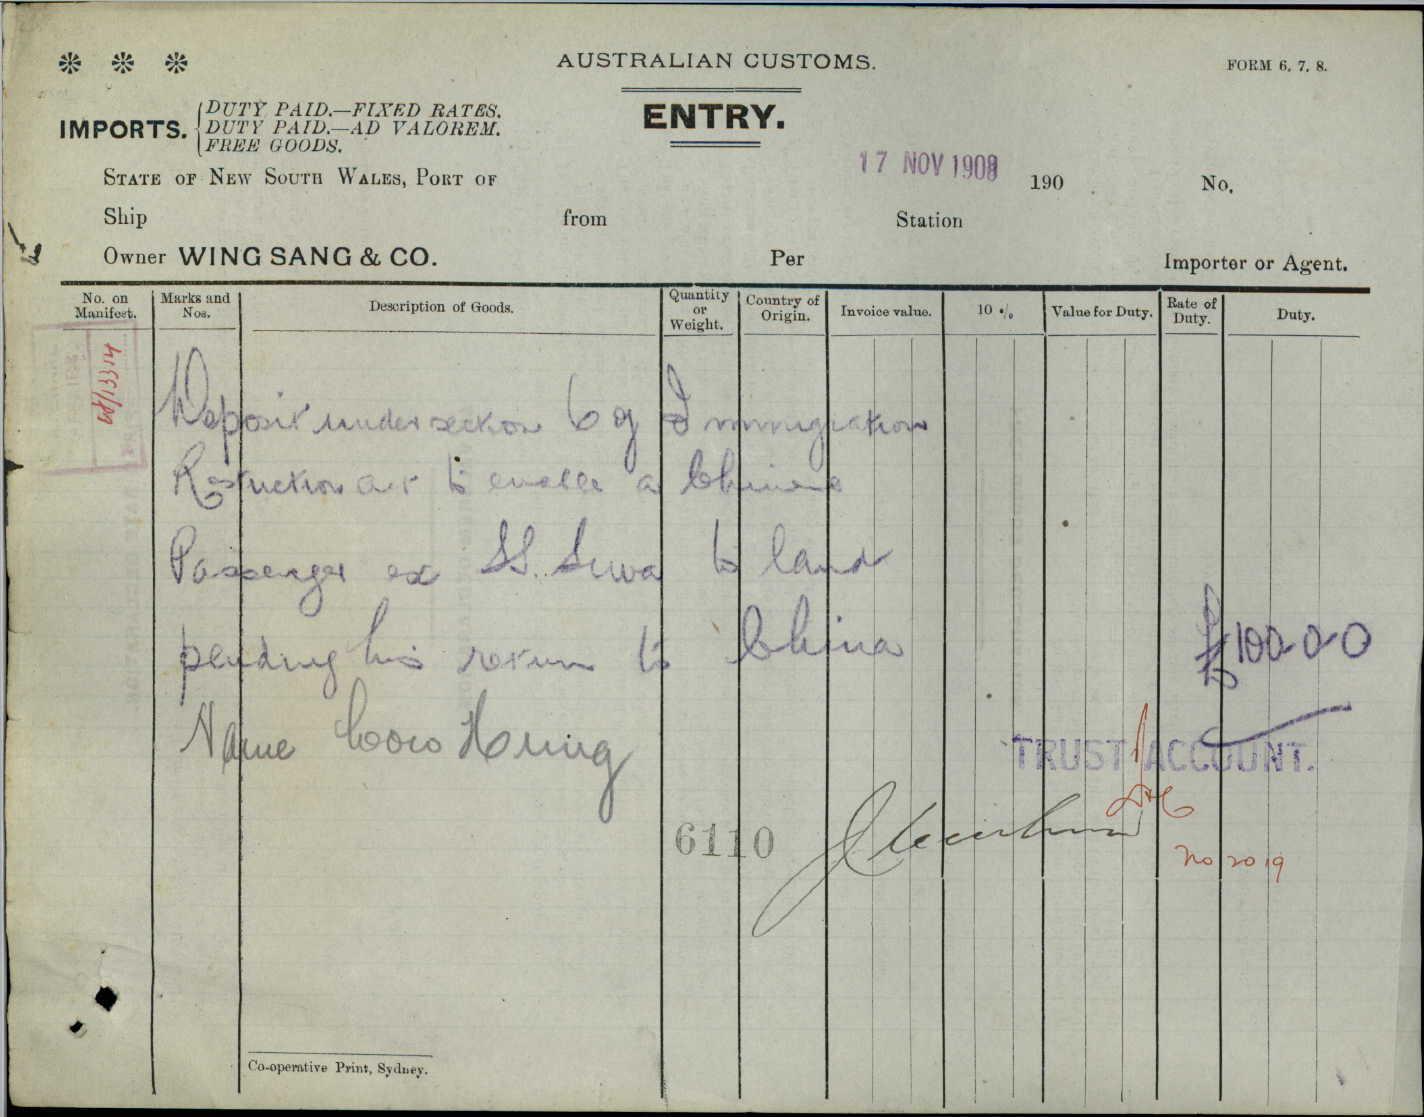 AUSTRALIAN CUSTOMS.
FORM 6, 7, 8.
IMPORTS.
DUTY PAID.—FIXED RATES.
DUTY PAID.—AD VALOREM.
FREE GOODS.
ENTRY.
STATE OF NEW SOUTH WALES, PORT OF
17 NOV 1908
190
No.
Ship from Station
Owner WING SANG & CO. Per Importer or Agent.
No. on Manifest.
Marks and Nos.
Description of Goods.
Quantity or Weight.
Country of Origin.
Invoice value.
10 %
Value for Duty.
Rate of Duty.
Duty.
08/13314
Deposit under section 6 of Immigration
Restriction Act to enable a Chinese
Passenger ex SS. Suva to land
pending his return to China
£100-0-0
Name Coow Hung
TRUST ACCOUNT.
6110
No 2019
Co-operative Print, Sydney.